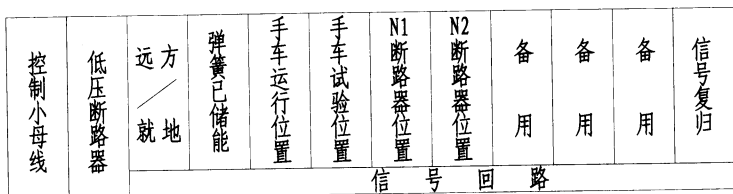 控制小母线
低压断路器
远方
／
就地
弹簧已储能
手车运行位置
手车试验位置
N1断路器位置
N2断路器位置
备用
备用
备用
信号复归
信号回路